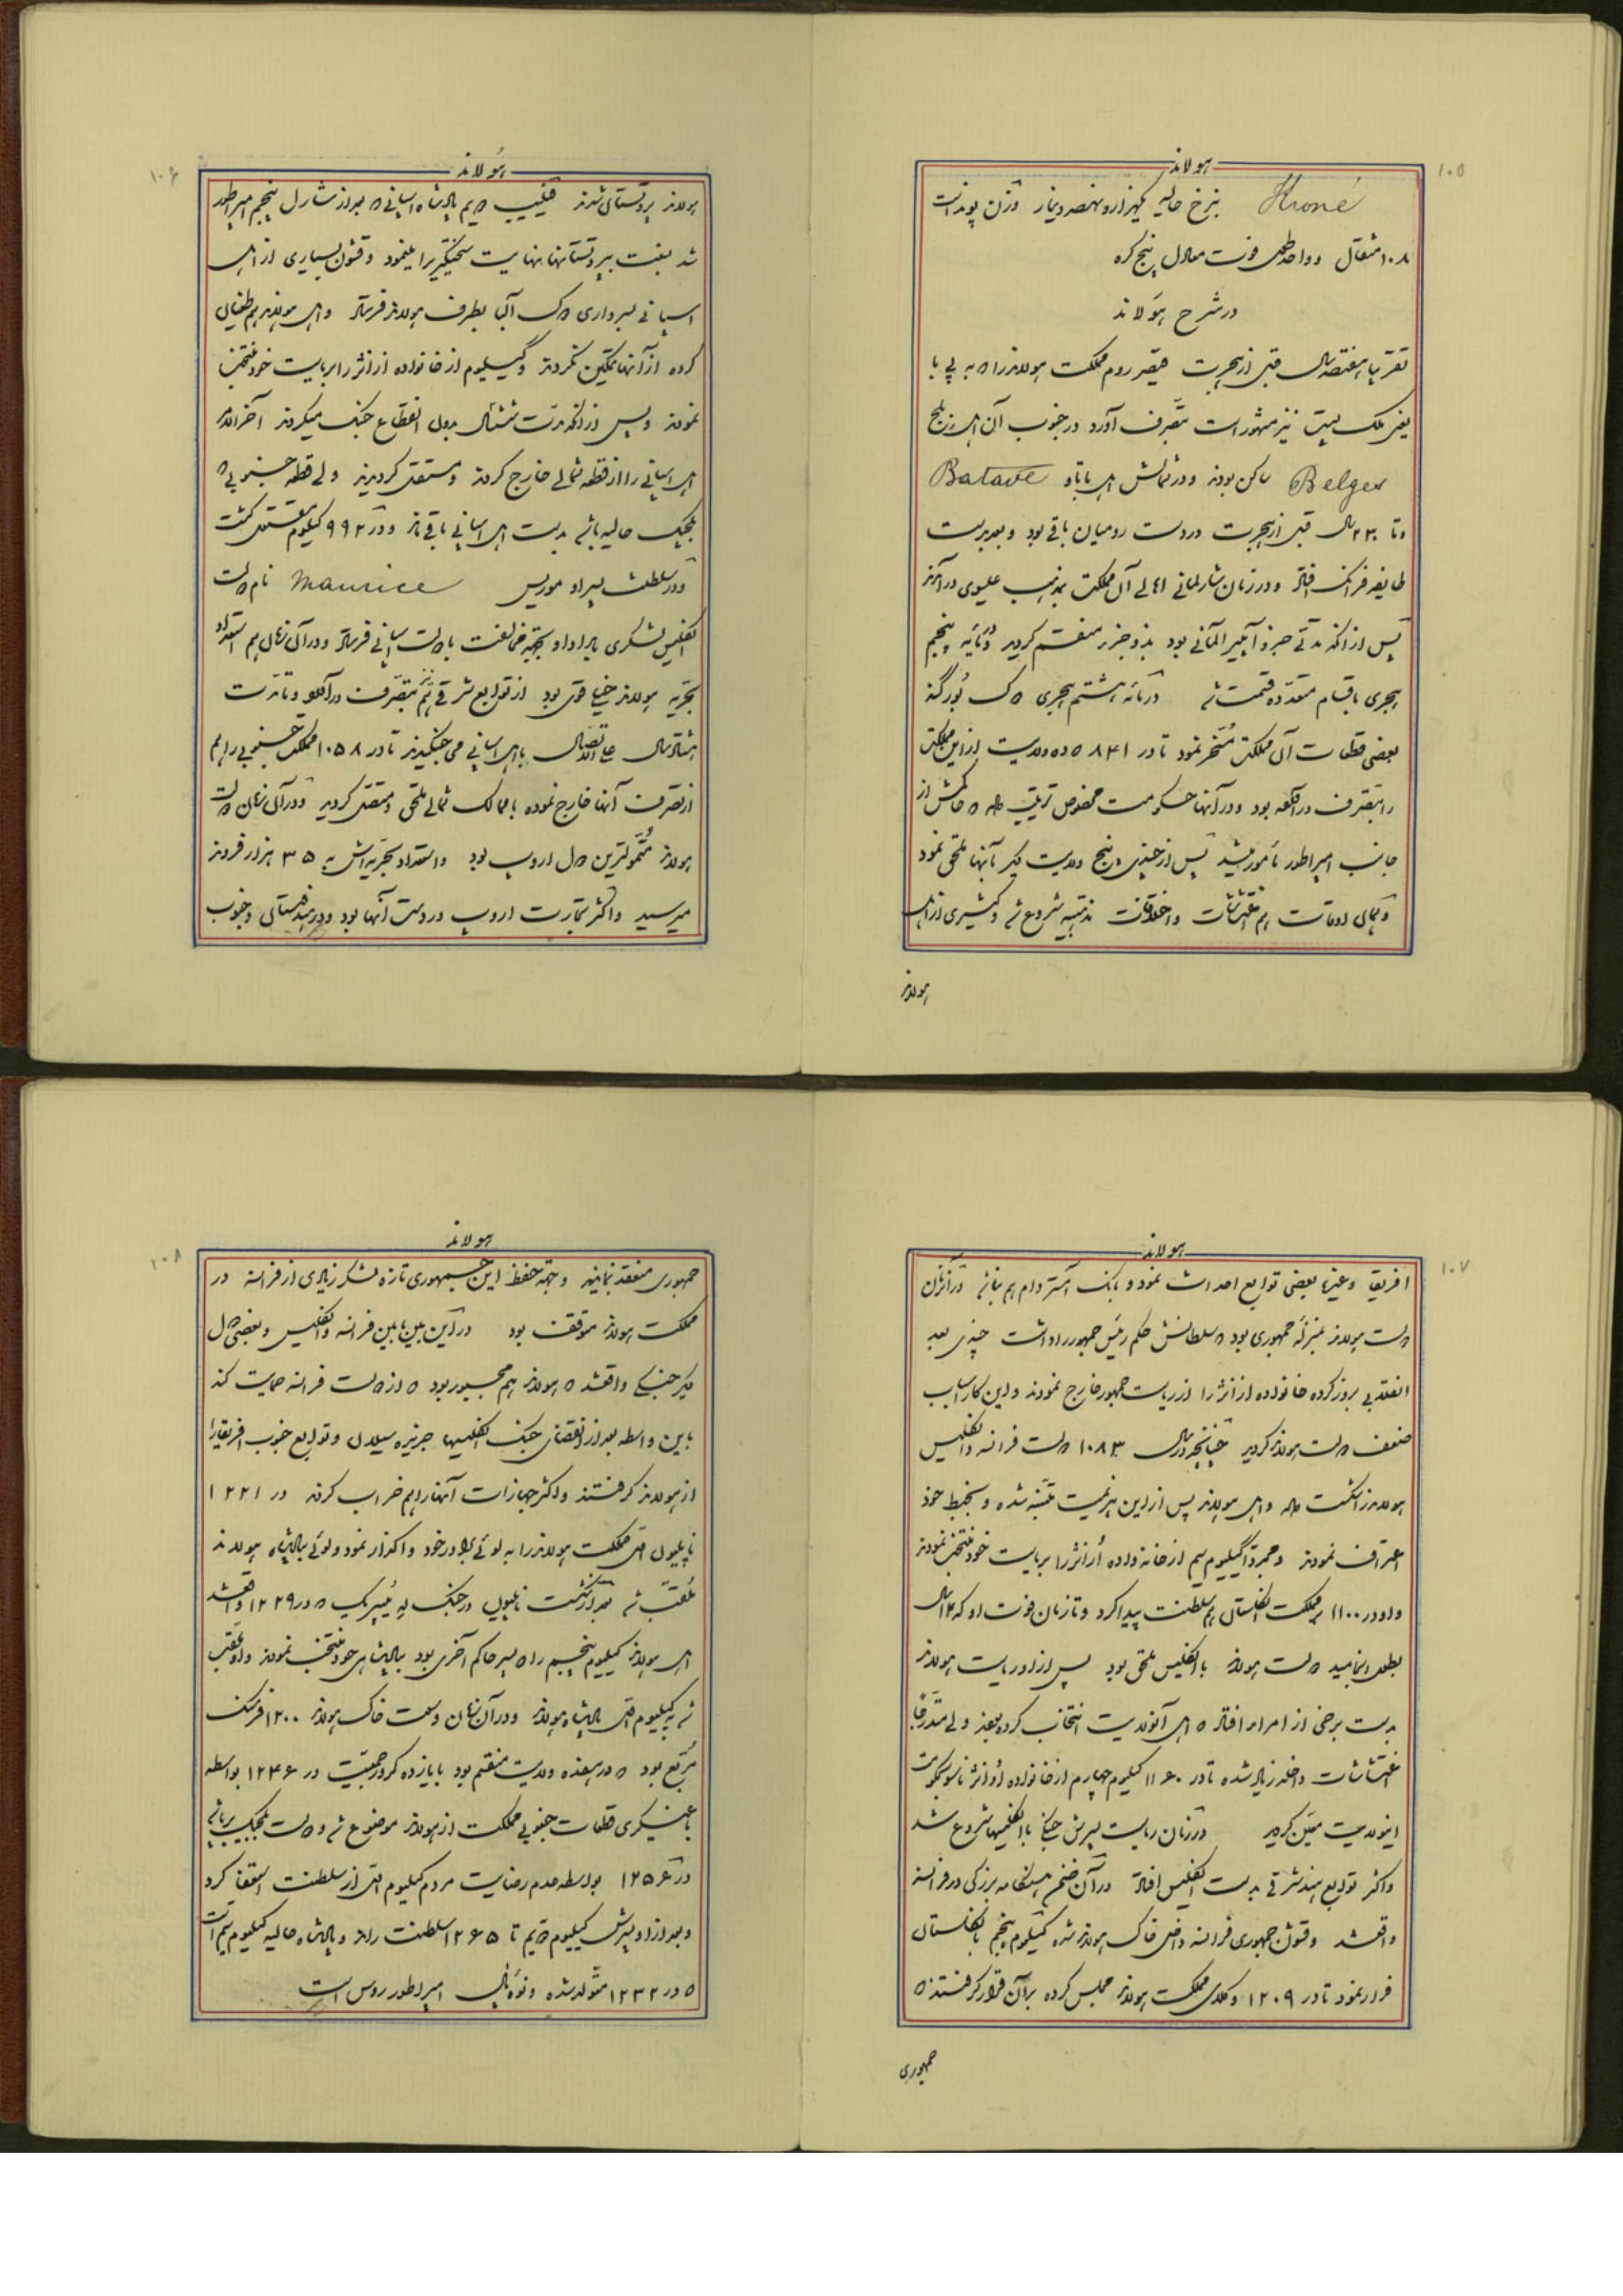 ۱۰۵
هولاند
Krone بنرخ حالیه یکهزار و نهصد دینار وزن پوند است
۱۰۸ مثقال و واحد طول فوت معادل پنج گره
در شرح هولاند
تقریبا هفتصد سال قبل از هجرت قیصر روم مملکت هولاند را که به پی با
یعنی ملک پست نیز مشهور است بتصرف آورد در جنوب آن اهل بلج
Belges ساکن بودند و در شمالش اهل باتاو Batave
و تا ۲۳۰ سال قبل از هجرت در دست رومیان باقی بود و بعد بدست
طایفه فرانک افتاد و در زمان شارلمانی اهالی آن مملکت بمذهب عیسوی درآمدند
پس از آنکه مدتی جزو آمپیر آلمانی بود بدو جزء منقسم گردید در مائه پنجم
هجری باقسام متعدده قسمت شد در مائه هشتم هجری دوک بورگنه
بعضی قطعات آن مملکت مسخر نمود تا در ۸۴۱ که ده ولایت از این مملکت
را بتصرف درآورده بود و در آنها حکومت مخصوص ترتیب داد که حاکمش از
جانب امپراطور مأمور میشد پس از چندی پنج ولایت دیگر بآنها ملحق نمود
و در همان اوقات هم اغتشاشات و اختلافات مذهبیه شروع شد و کثیری از اهل
هولاند
۱۰۶
هولاند
هولاند پروتستان شدند فیلیپ دویم پادشاه اسپانی که بعد از شارل پنجم امپراطور
شد نسبت به پروتستانها نهایت سختگیری را مینمود و قشون بسیاری از اهل
اسپانی بسرداری دوک آلب بطرف هولاند فرستاد و اهل هولاند هم طغیان
کرده از آنها تمکین نکردند و گیلیوم از خانواده ارانژ را بریاست خود منتخب
نمودند و پس از آنکه مدت شش سال بدون انقطاع جنگ میکردند آخر الامر
اهل اسپانی را از قطعه شمالی خارج کردند و مستقل گردیدند ولی قطعه جنوبی که
بلجیک حالیه باشد بدست اهل اسپانی باقی ماند و در ۹۹۲ گیلیوم مقتول گشت
و در سلطنت پسر او موریس Maurice نام دولت
انگلیس لشکری بامداد او بجهت مخالفت با دولت اسپانی فرستاد و در آن زمان هم استعداد
بحریه هولاند خیلی قوی بود از توابع شرقی هم بتصرف درآورد و تا مدت
هشتاد سال علی الاتصال با اهل اسپانی می‌جنگیدند تا در ۱۰۵۸ مملکت جنوبی را هم
از تصرف آنها خارج نموده با ممالک شمالی ملحق و مستقل گردید و در آن زمان دولت
هولاند متمولترین دول اروپ بود و استعداد بحریه‌اش به ۳۵ هزار فروند
میرسید و اکثر تجارت اروپ در دست آنها بود و در هندوستان و جنوب
۱۰۷
هولاند
افریقا و غیرها بعضی توابع احداث نمود و بانک آمستردام هم بنا شد در آنزمان
دولت هولاند بمنزله جمهوری بود که سلطانش حکم رئیس جمهور را داشت چندی بعد
انقلابی بروز کرده خانواده ارانژ را از ریاست جمهور خارج نمودند و این کار اسباب
ضعف دولت هولاند گردید چنانچه در سال ۱۰۸۳ دولت فرانسه و انگلیس
هولاند را شکست داد و اهل هولاند پس از این هزیمت متنبه شده و بخبط خود
اعتراف نمودند و مجددا گیلیوم سیم از خانواده اُرانژ را بریاست خود منتخب نمودند
و او در ۱۱۰۰ بمملکت انگلستان هم سلطنت پیدا کرد و تا زمان فوت او که ۱۳ سال
بطول انجامید دولت هولاند با انگلیس ملحق بود پس از او ریاست هولاند
بدست برخی از امراء افتاد که اهل آنولایت انتخاب کرده بودند ولی متدرجا
اغتشاشات داخله زیاد شده تا در ۱۱۶۰ گیلیوم چهارم از خانواده اُرانژ ناسو بحکومت
اینولایت معین گردید در زمان ریاست پسرش جنگ با انگلیسها شروع شد
و اکثر توابع هند شرقی بدست انگلیس افتاد در آن ضمن هنگامه بزرگی در فرانسه
واقع شد و قشون جمهوری فرانسه داخل خاک هولاند شده گیلیوم پنجم بانگلستان
فرار نمود تا در ۱۲۰۹ وکلای مملکت هولاند مجلس کرده بر آن قرار گرفتند که
جمهوری
۱۰۸
هولاند
جمهوری منعقد نمایند و بجهة حفظ این جمهوری تازه لشکر زیادی از فرانسه در
مملکت هولاند متوقف بود در این بین مابین فرانسه و انگلیس و بعضی دول
دیگر جنگی واقع شد که هولاند هم مجبور بود که از دولت فرانسه حمایت کند
باین واسطه بعد از انقضای جنگ انگلیسها جزیره سیلان و توابع جنوب افریقا را
از هولاند گرفتند و اکثر جهازات آنها را هم خراب کردند در ۱۲۲۱
ناپلیون اول مملکت هولاند را به لوئی برادر خود واگذار نمود و لوئی پادشاه هولاند
ملقب شد بعد از شکست ناپلیون در جنگ لیپسیک که در ۱۲۲۹ واقع شد
اهل هولاند گیلیوم پنجم را که پسر حاکم آخری بود بپادشاهی خود منتخب نمودند و او ملقب
شد به گیلیوم اول پادشاه هولاند و در آن زمان وسعت خاک هولاند ۱۲۰۰ فرسنگ
مربع بود که در هفده ولایت منقسم بود با یازده کرور جمعیت در ۱۲۴۶ بواسطه
یاغیگری قطعات جنوبی مملکت از هولاند موضوع شد و دولت بلجیک برپا شد
در ۱۲۵۶ بواسطه عدم رضایت مردم گیلیوم اول از سلطنت استعفا کرد
و بعد از او پسرش گیلیوم دویم تا ۱۲۶۵ سلطنت راند و پادشاه حالیه گیلیوم سیم است
که در ۱۲۳۲ متولد شده و نوه پال امپراطور روس است